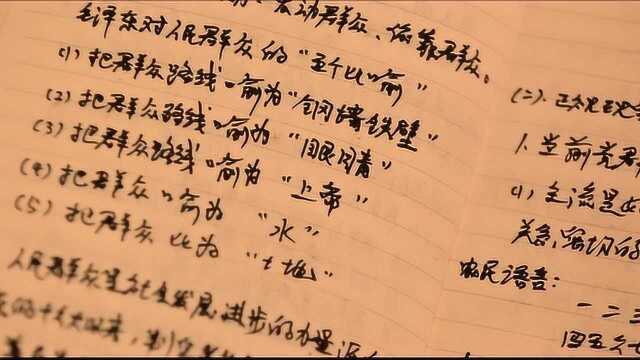 动群众、依靠群众。
毛泽东对人民群众的“五个比喻”
(1) 把群众路线喻为“铜墙铁壁”
(2) 把群众路线喻为“眼睛”
(3) 把群众路线喻为“上帝”
(4) 把群众喻为“水”
(5) 把群众比为“土地”
人民群众是社会发展、进步的力量源
(二)、正确
1. 当前党群
(1) 主流是
关系,密切的
农民语言:
一二三
四五六